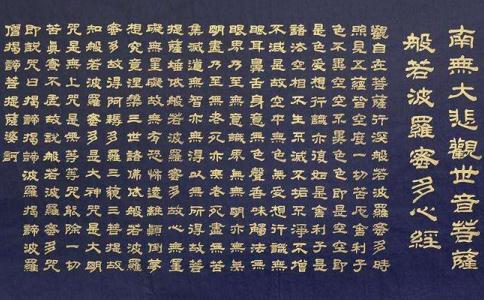 南無大悲觀世音菩薩
般若波羅蜜多心經
觀自在菩薩行深般若波羅蜜多時
照見五蘊皆空度一切苦厄舍利子
色不異空空不異色色即是空空即
是色受想行識亦復如是舍利子是
諸法空相不生不滅不垢不淨不增
不減是故空中無色無受想行識無
眼耳鼻舌身意無色聲香味觸法無
眼界乃至無意識界無無明亦無無
明盡乃至無老死亦無老死盡無苦
集滅道無智亦無得以無所得故菩
提薩埵依般若波羅蜜多故心無罣
礙無罣礙故無有恐怖遠離顛倒夢
想究竟涅槃三世諸佛依般若波羅
蜜多故得阿耨多羅三藐三菩提故
知般若波羅蜜多是大神咒是大明
咒是無上咒是無等等咒能除一切
苦真實不虛故說般若波羅蜜多咒
即說咒曰揭諦揭諦波羅揭諦波羅
僧揭諦菩提薩婆訶